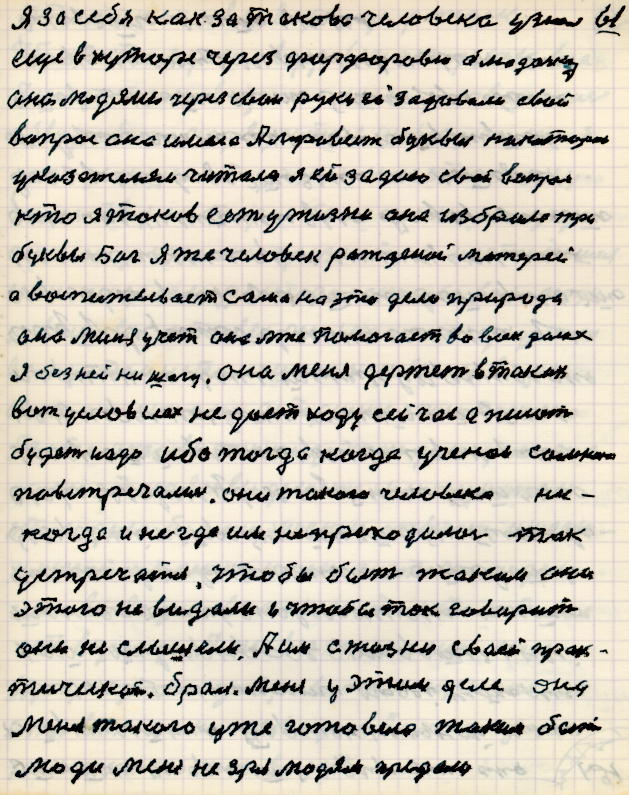 Я за себя как за такова человека узнал 61
еще в хуторе через фарфоровою блюдочку
она людями через свои руки ей задовали свой
вопрос она имела Алфовит буквы
указателям читала я ей задаю свой вопрос
кто я таков есть у жизни она избрала три
буквы Бог я же человек рожденой матерей
а воспитывает сама на это дело природа
она миня учет она мне помогает во всех делах
я без ней ни шагу. она меня держет в таких
вот условиях не дает ходу сейчас а может
будет надо ибо тогда когда ученой со мною
повстречались. они такого человека ни-
когда и не где им не приходилос так
устречатся, чтобы быт таким они
этого не видали и чтобы так говорит
они не слышели. А им с жизни своей прак-
тической. брал. меня у этим деле она
меня такого уже готовела таким быт
люди меня не зря людям предала